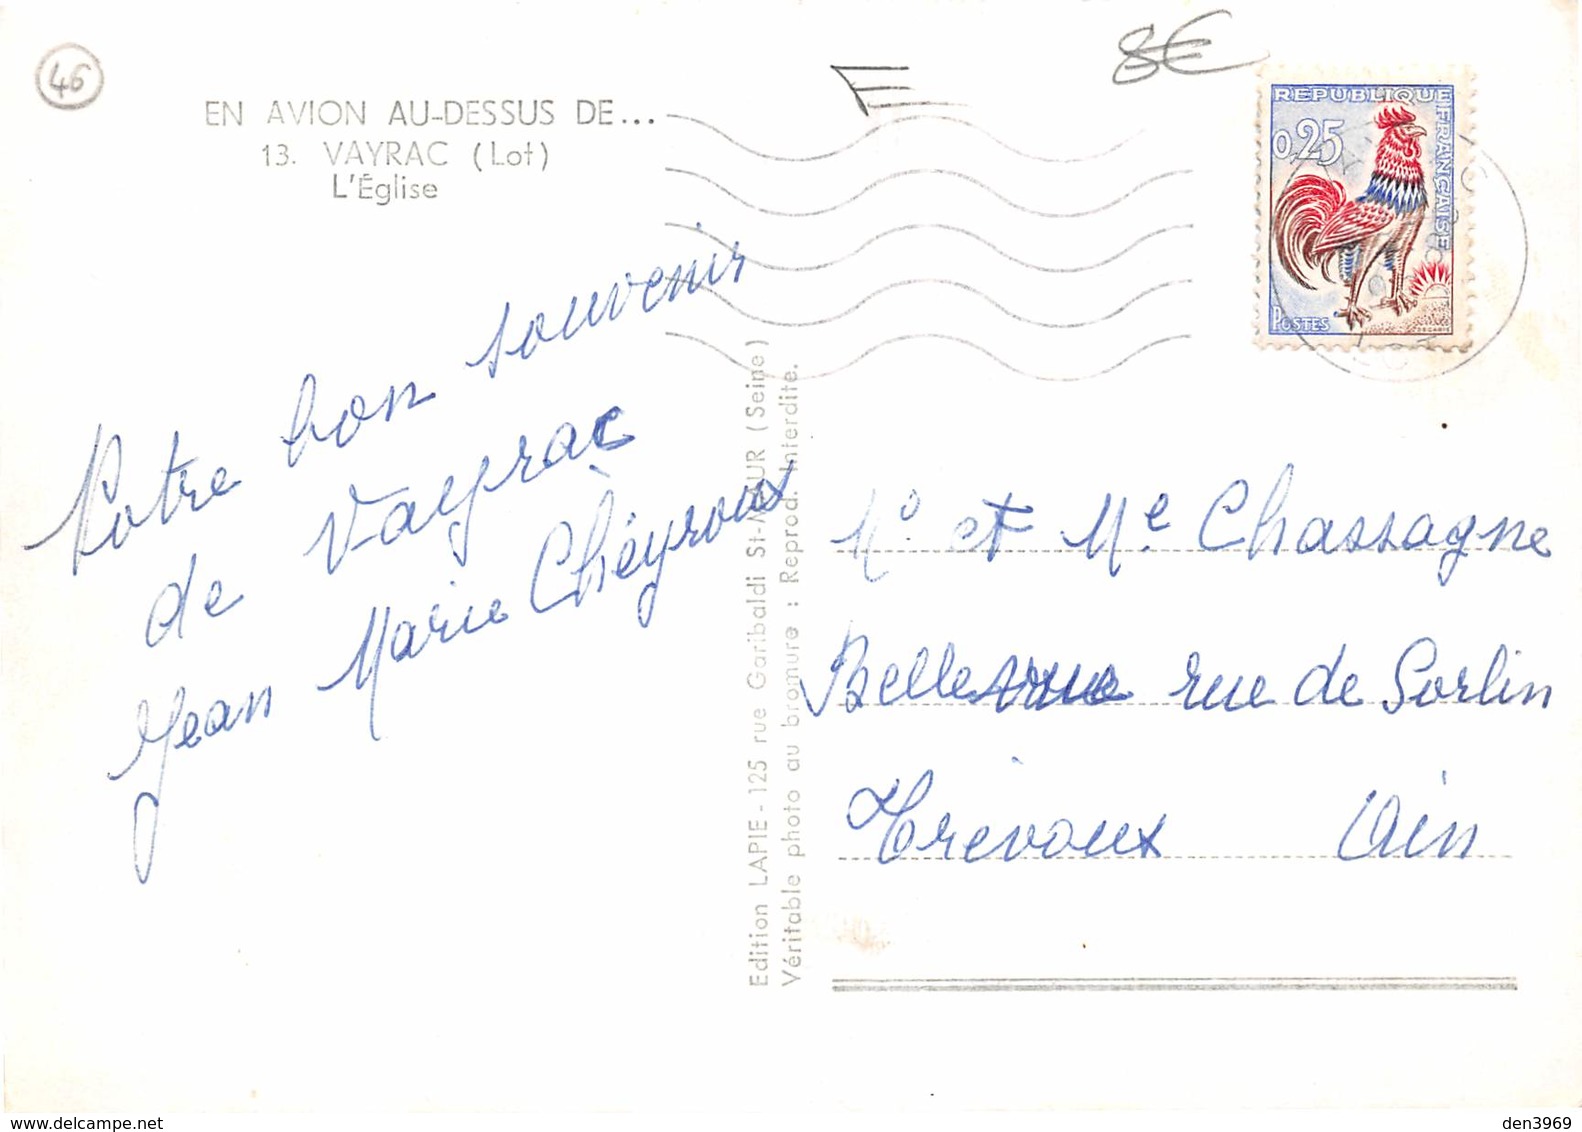 46
8€
EN AVION AU-DESSUS DE...
13. VAYRAC (Lot)
L'Église
REPUBLIQUE FRANÇAISE
0,25
POSTES
Notre bon souvenir
de Vayrac
Jean Marie Chèyroux
Edition LAPIE - 125 rue Garibaldi St-MAUR (Seine)
Véritable photo au bromure : Reprod. Interdite.
Mr et Me Chassagne
Bellevue rue de Sorlin
Trévoux Ain
den3969